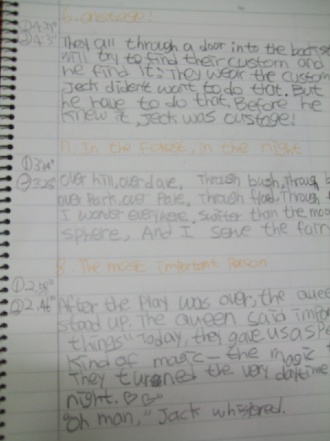 6. onstage!
They all through a door into the backst
will try to find their custom and
he find it. They wear the custom
Jeck dident want to do that. But
he have to do that. Before he
knew it, Jeck was custage!
7. In the Forest, in the night
over hill, over dale, Through bush, Throug b
over Park, over Pale, Through flood, Through
I wander everywhere, swifter than the moo
sphere, And I serve the fairy
8. The most important Person
After the Play was over, the quee
stood up. The queen said impor
things "Today, they gave us a sp
kind of magic — the magic
They turened the very daytime
night. ♡♡
"oh man," Jack whisered.